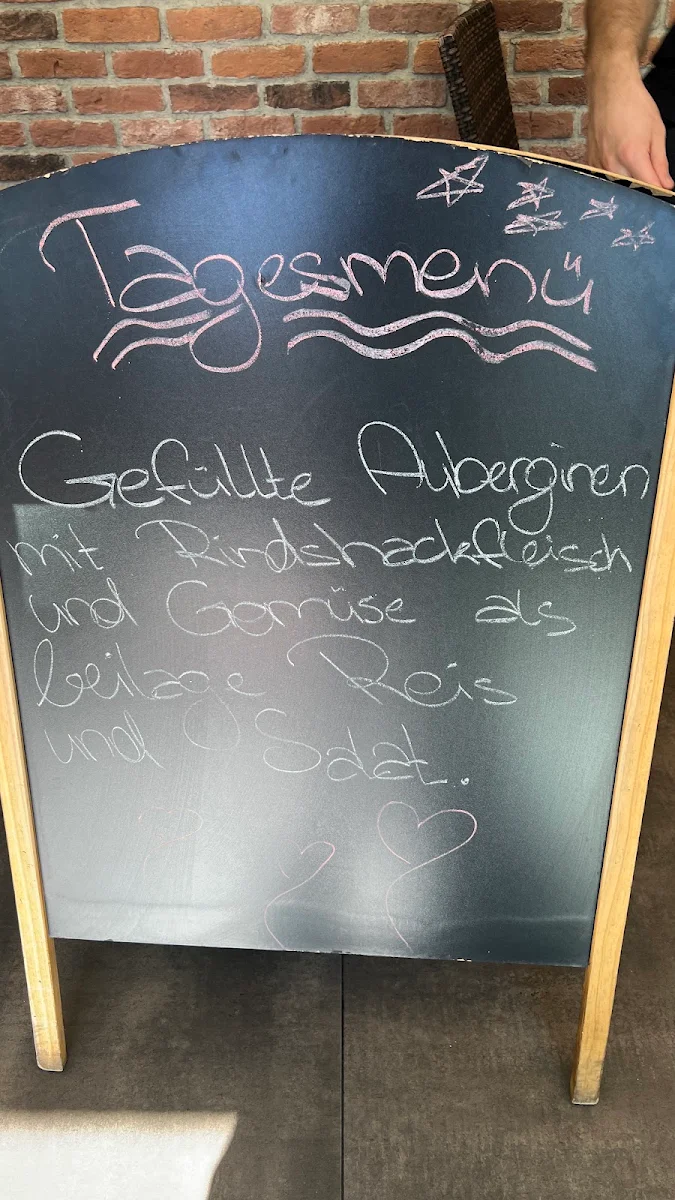 Tagesmenü
Gefüllte Auberginen
mit Rindshackfleisch
und Gemüse als
beilage Reis
und Salat.